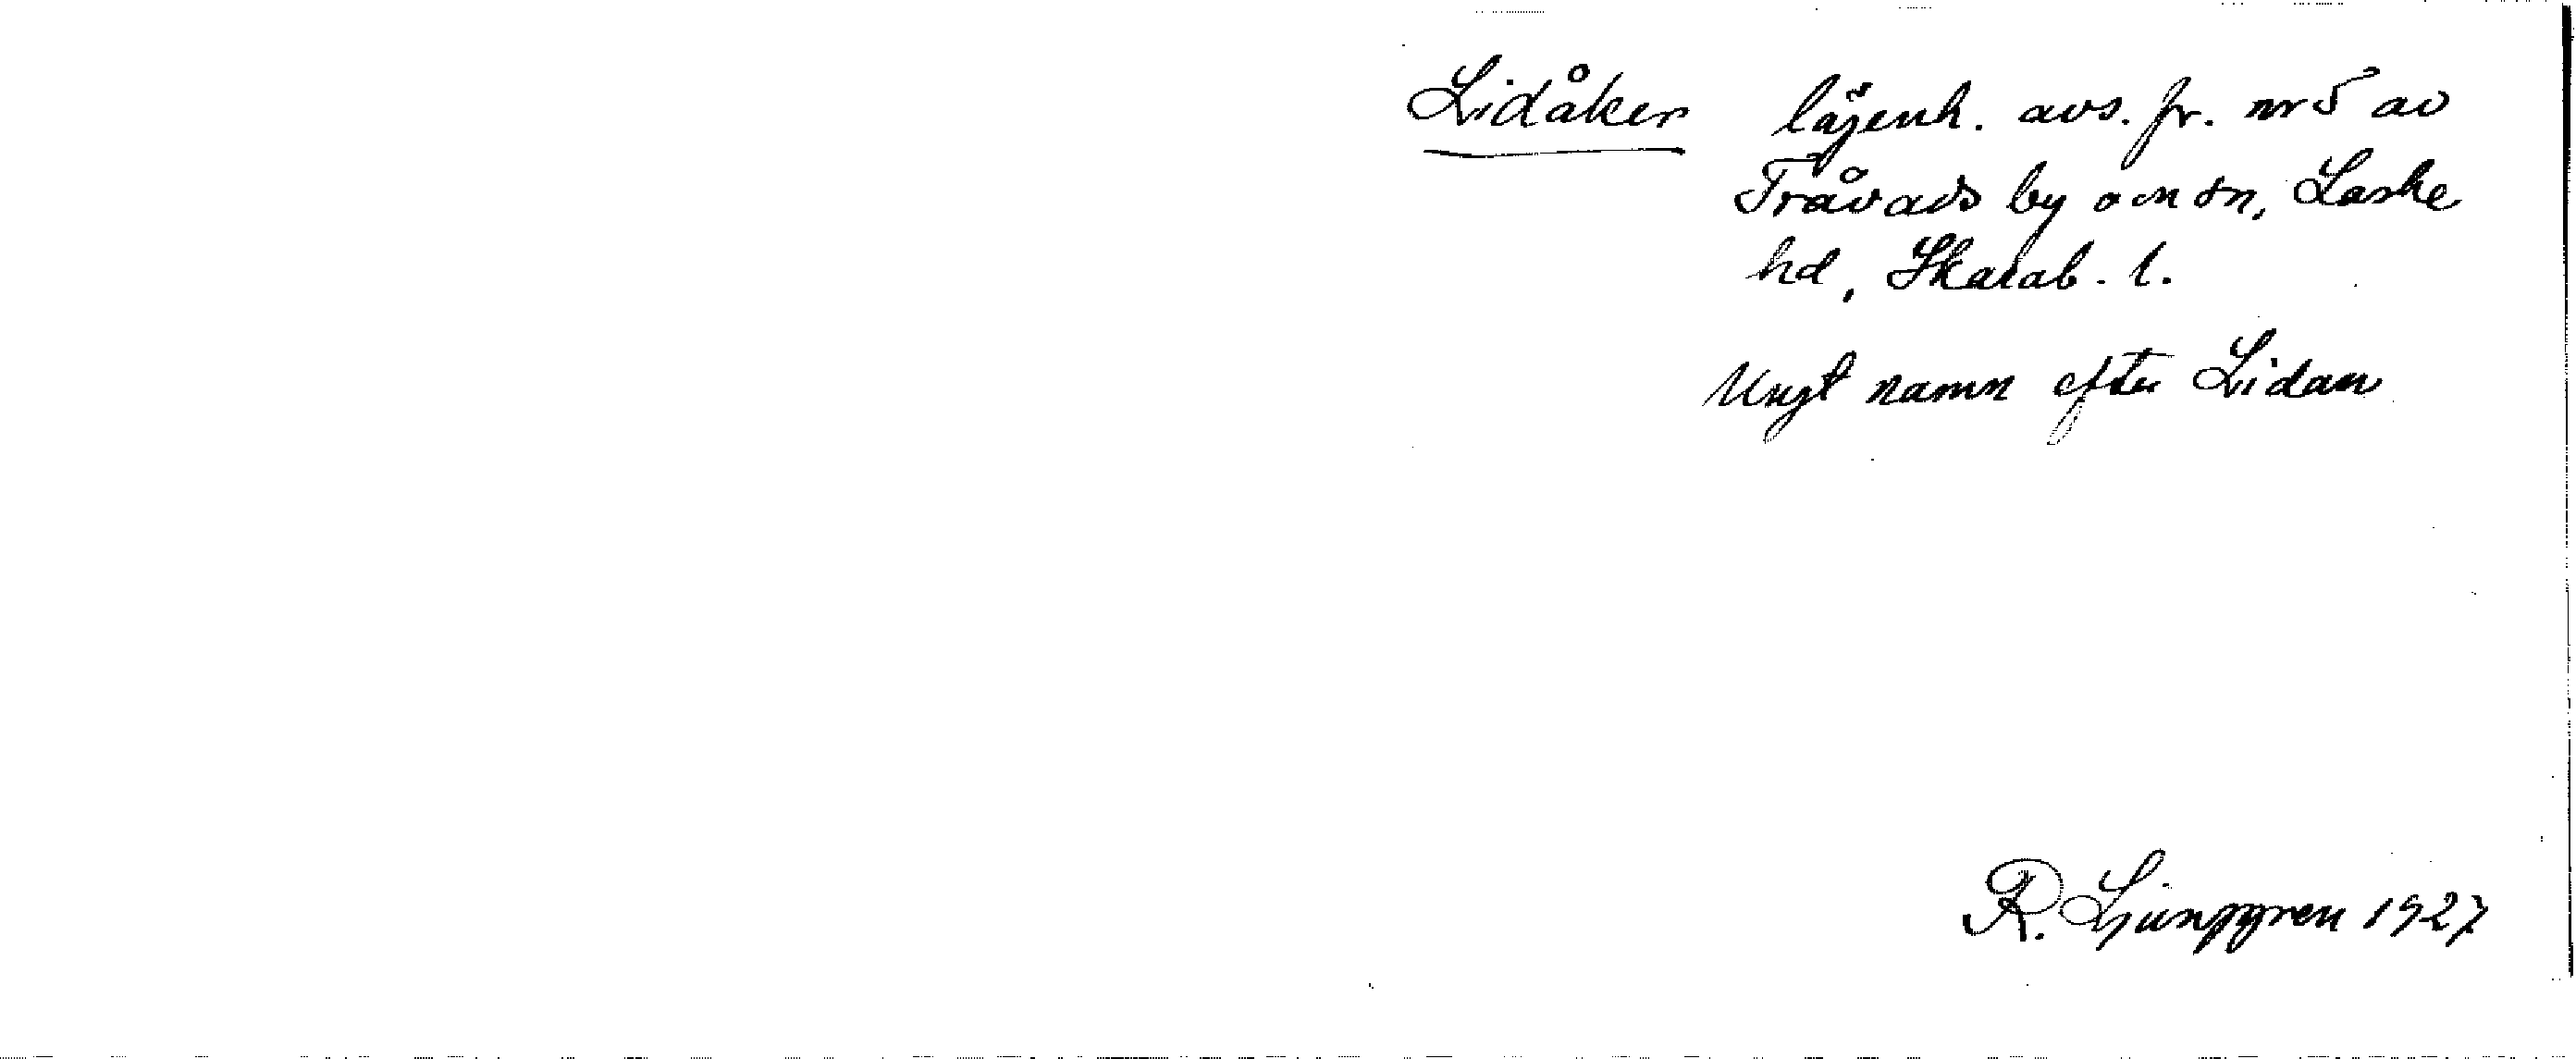 Lidåker lägenh. avs. fr. nr 5 av
Tråvads by o sn, Laske
hd, Skarab. l.
Ungt namn efter Lidan
R. Ljunggren 1927